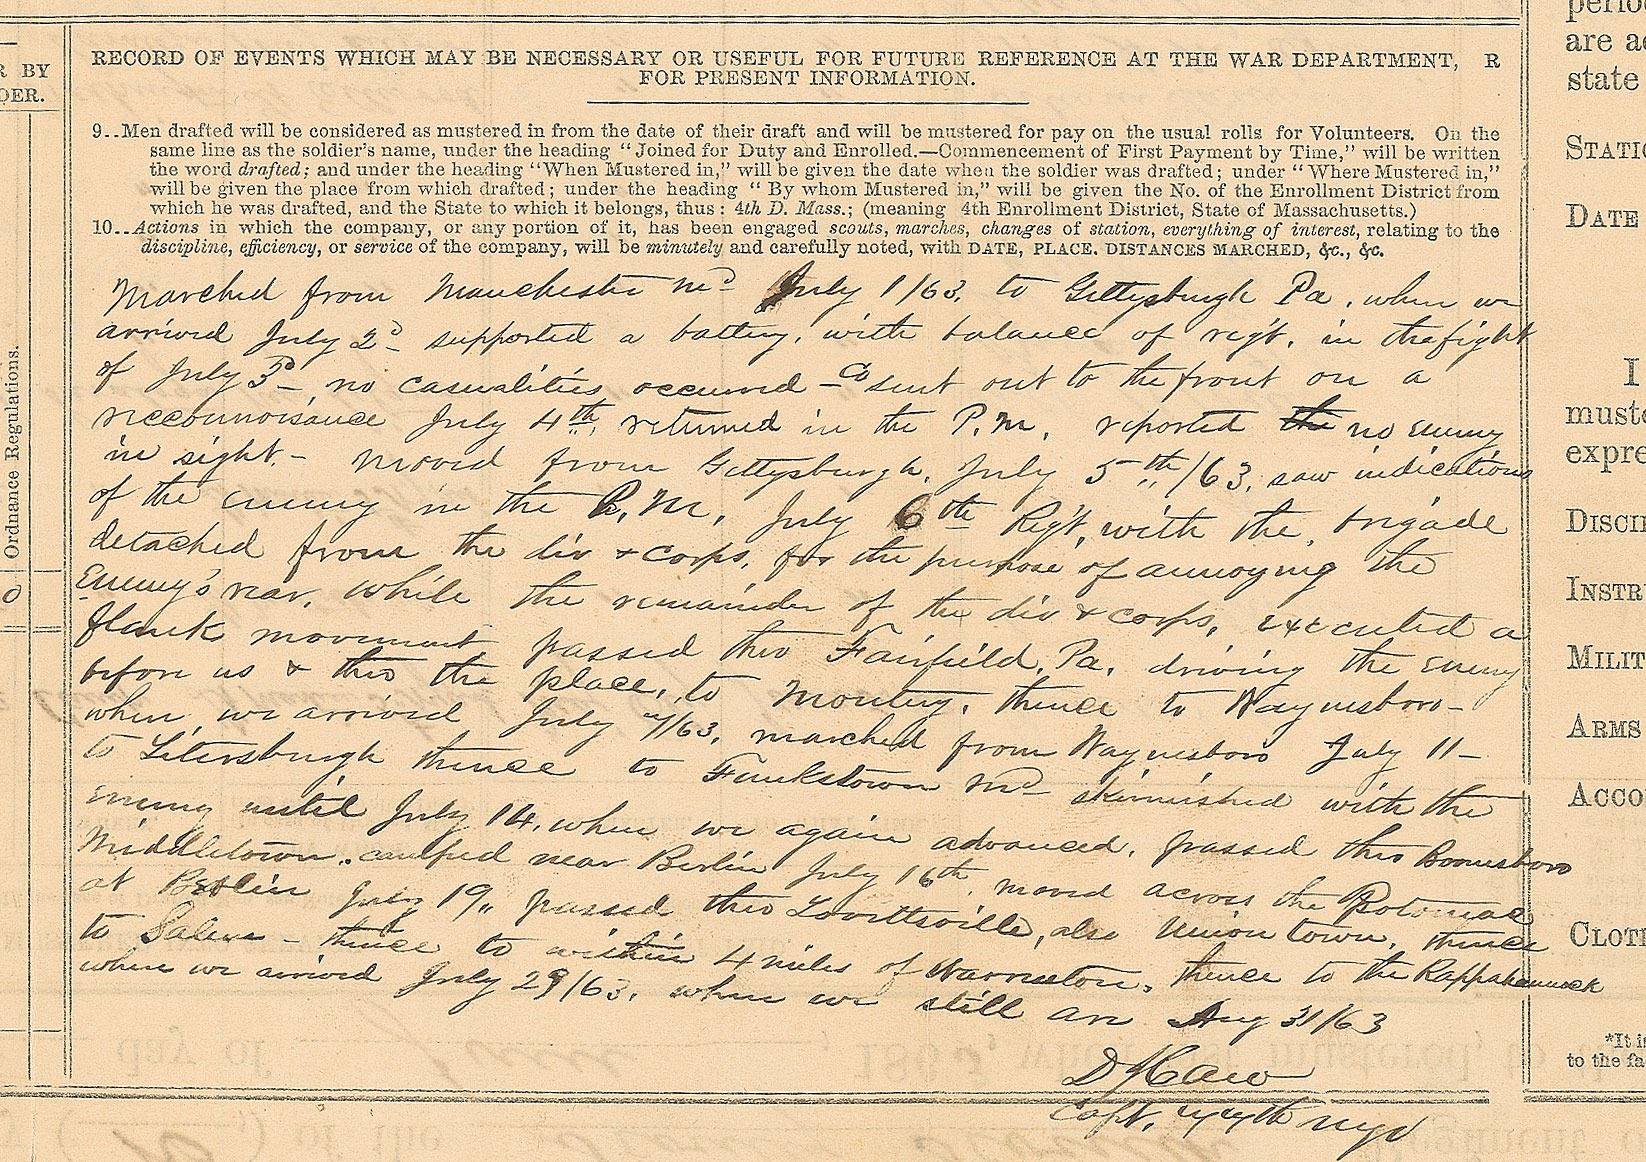 RECORD OF EVENTS WHICH MAY BE NECESSARY OR USEFUL FOR FUTURE REFERENCE AT THE WAR DEPARTMENT, R
FOR PRESENT INFORMATION.
9..Men drafted will be considered as mustered in from the date of their draft and will be mustered for pay on the usual rolls for Volunteers. On the
same line as the soldier's name, under the heading "Joined for Duty and Enrolled.—Commencement of First Payment by Time," will be written
the word drafted; and under the heading "When Mustered in," will be given the date when the soldier was drafted; under "Where Mustered in,"
will be given the place from which drafted; under the heading " By whom Mustered in," will be given the No. of the Enrollment District from
which he was drafted, and the State to which it belongs, thus: 4th D. Mass.; (meaning 4th Enrollment District, State of Massachusetts.)
10..Actions in which the company, or any portion of it, has been engaged scouts, marches, changes of station, everything of interest, relating to the
discipline, efficiency, or service of the company, will be minutely and carefully noted, with DATE, PLACE. DISTANCES MARCHED, &c., &c.
Marched from Manchester Md July 1/63. to Gettysburgh Pa. when we
arrived July 2d supported a battery, with balance of reg't. in the fight
of July 3d – no casualities occurred – Co sent out to the front on a
reconnoisance July 4th, returned in the P.M. reported the no enemy
in sight. – moved from Gettysburgh, July 5th/63, saw indications
of the enemy in the P.M. July 6th Reg't, with the brigade
detached from the div & corps, for the purpose of annoying the
Enemy's rear, while the remainder of the div & corps, executed a
flank movement passed thro Fairfield, Pa. driving the enemy
before us & thro the place, to Montery, thence to Waynesboro –
when we arrived July 7/63, marched from Waynesboro July 11 –
to Litersburgh thence to Funkstown Md skirmished with the
enemy until July 14, when we again advanced, passed thro Boonesboro
Middletown. camped near Berlin July 16th, moved across the Potomac
at Berlin July 19, passed thro Lovettsville, also Union town, thence
to Salem – thence to within 4 miles of Warrenton, thence to the Rappahannock
when we arrived July 29/63. when we still are Aug 31/63
Capt. 44th NYV
R BY
DER.
Ordnance Regulations.
0
are a
state
STATIO
DATE
I
muste
expre
DISCI
INSTR
MILIT
ARMS
ACCO
CLOTH
*It i
to the fa